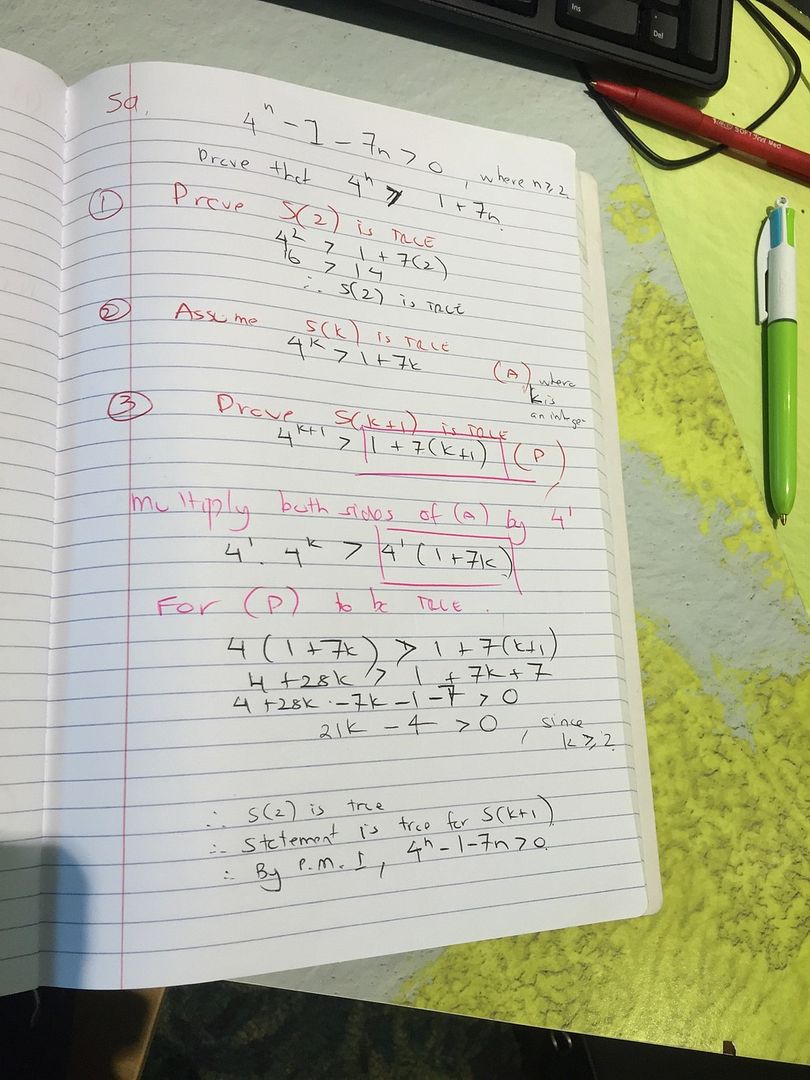 Ins
Del
5a,
4ⁿ - 1 - 7n > 0, where n ≥ 2
Prove that 4ⁿ > 1 + 7n.
① Prove S(2) is TRUE
4² > 1 + 7(2)
16 > 14
∴ S(2) is TRUE
② Assume S(k) is TRUE
4ᵏ > 1 + 7k (A) where
k is
an integer
③ Prove S(k+1) is TRUE
4ᵏ⁺¹ > 1 + 7(k+1) (P)
Multiply both sides of (A) by 4¹
4¹. 4ᵏ > 4¹(1+7k)
For (P) to be TRUE.
4(1+7k) > 1 + 7(k+1)
4 + 28k > 1 + 7k + 7
4 + 28k - 7k - 1 - 7 > 0
21k - 4 > 0, since
k ≥ 2
∴ S(2) is true
∴ Statement is true for S(k+1)
∴ By P.M.I, 4ⁿ - 1 - 7n > 0